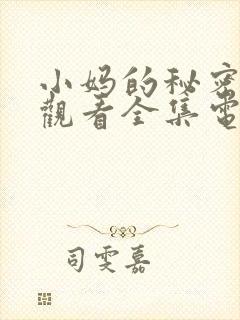 小妈的秘密
觀看全集電
司雯嘉